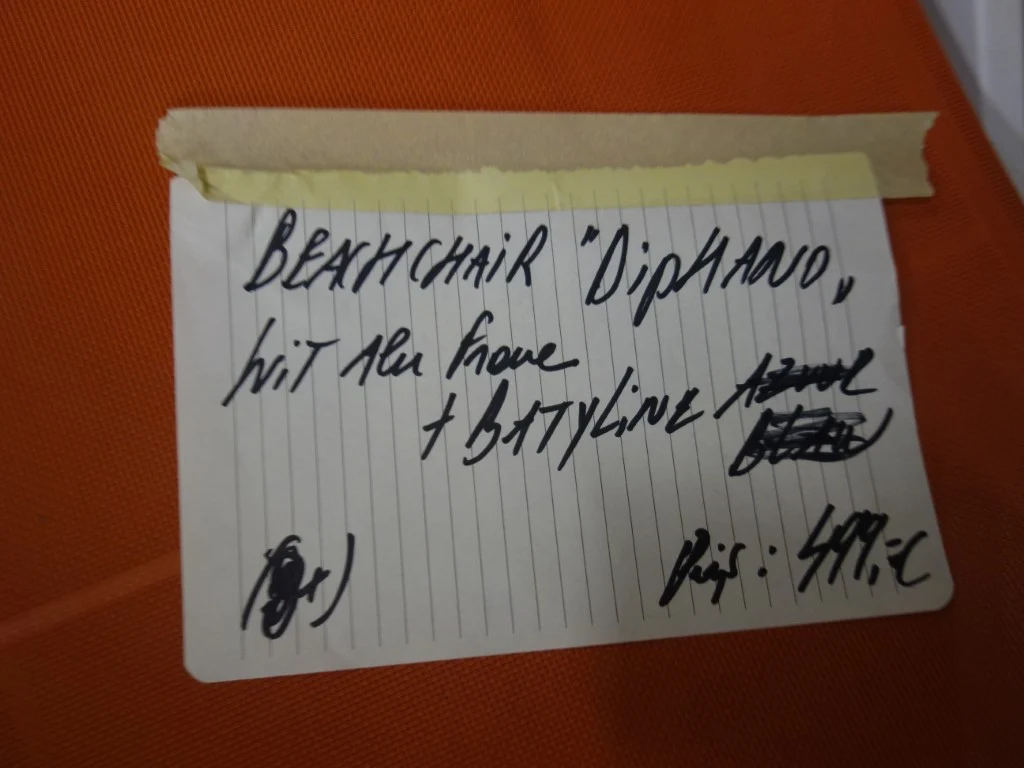 BEACHCHAIR "DipHANO„
WiT Alu Frame
+ BATYLINE
Prijs: 499,-€